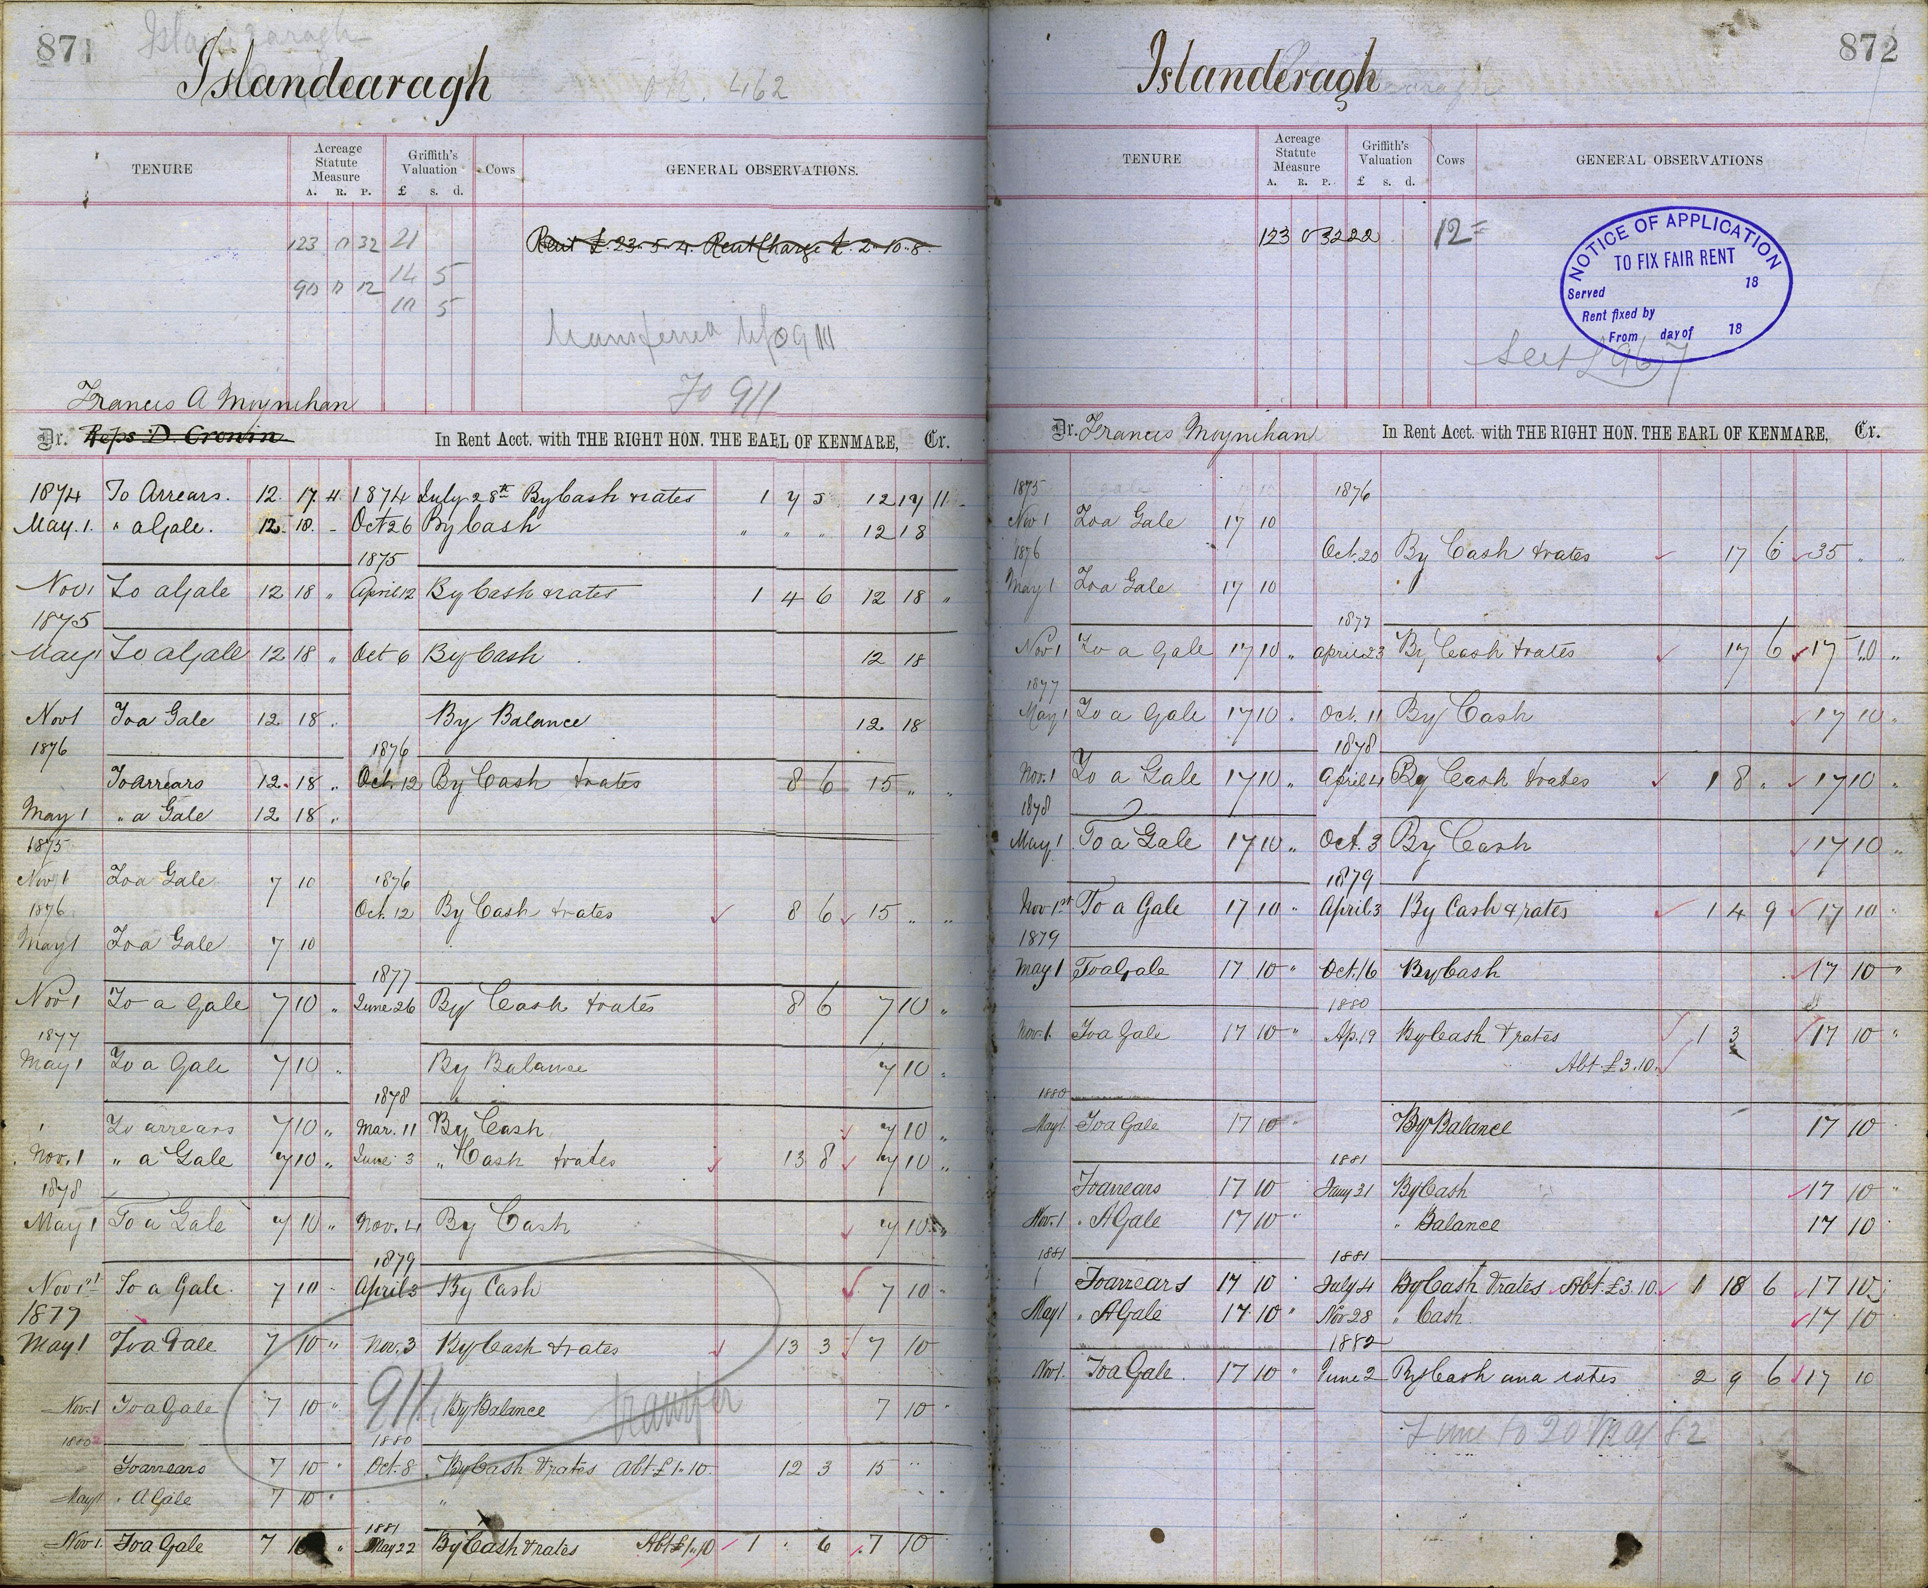 871
Islandearagh
Islandearagh
O.R. 462
TENURE
Acreage Statute Measure
A. R. P.
Griffith's Valuation
£ s. d.
Cows
GENERAL OBSERVATIONS.
123 0 32 21
Rent £. 23. 5. 4. Rent Charge £. 2. 10. 8.
90 0 12 14 5
10 5
To 911
Francis A Moynihan
Dr. Reps D. Cronin In Rent Acct. with THE RIGHT HON. THE EARL OF KENMARE, Cr.
1874 To Arrears. 12. 17. 4. 1874 July 28th By Cash & rates 1 7 5 12 17 11
May. 1. " a Gale. 12 18. - Oct 26 By Cash " " " 12 18
1875
Nov 1 To a Gale 12 18 " April 12 By Cash & rates 1 4 6 12 18 "
1875
May 1 To a Gale 12 18 " Oct 6 By Cash 12 18
Nov 1 To a Gale 12. 18 .. By Balance 12. 18
1876 1876
To arrears 12. 18 " Oct. 12 By Cash & rates 8 6 15 " "
May 1 " a Gale 12 18 "
1875
Nov 1 To a Gale 7 10 1876
1876 Oct. 12 By Cash & rates 8 6 15 " "
May 1 To a Gale 7 10
1877
Nov 1 To a Gale 7 10 " June 26 By Cash & rates 8 6 7 10 "
1877
May 1 To a Gale 7 10 " By Balance 7 10 "
1878
To arrears 7 10 " Mar. 11 By Cash 7 10 "
Nov. 1 " a Gale 7 10 " June 3 " Cash & rates 13 8 7 10 "
1878
May 1 To a Gale 7 10 " Nov. 4 By Cash 7 10 "
1879
Nov 1st To a Gale. 7 10 - April 3 By Cash 7 10
1879
May 1 To a Gale 7 10 " Nov. 3 By Cash & rates 13 3 7 10
Nov. 1 To a Gale 7 10 " 911 By Balance transfer 7 10 "
1880 1880
To arrears 7 10 " Oct. 8 By Cash & rates Abt. £1. 10. 12 3 15 "
May 1 " A Gale 7 10 "
1881
Nov 1. To a Gale 7 10 " May 22 By Cash & rates Abt £1. 10 1 . 6 7 10
872
Islanderagh
TENURE
Acreage Statute Measure
A. R. P.
Griffith's Valuation
£ s. d.
Cows
GENERAL OBSERVATIONS
123 0 32 22 12=
NOTICE OF APPLICATION
TO FIX FAIR RENT
Served 18
Rent fixed by
From day of 18
Dr. Francis Moynihan In Rent Acct. with THE RIGHT HON. THE EARL OF KENMARE, Cr.
1875 1876
Nov 1 To a Gale 17 10
1876 Oct. 20 By Cash & rates 17 6 35 " "
May 1 To a Gale 17 10
1877
Nov 1 To a Gale 17 10 " April 23 By Cash & rates 17 6 17 10 "
1877
May 1 To a Gale 17 10 . Oct. 11 By Cash 17 10 "
1878
Nov. 1 To a Gale 17 10 " April 4 By Cash & rates 1 8 " 17 10 "
1878
May 1 To a Gale 17 10 " Oct. 3 By Cash 17 10 "
1879
Nov 1st To a Gale 17 10 " April 3 By Cash & rates 1 4 9 17 10 "
1879
May 1 To a Gale 17 10 " Oct. 16 By Cash 17 10 "
1880
Nov. 1. To a Gale 17 10 " Ap. 19 By Cash & rates 1 3 17 10 "
Abt. £3. 10.
1880
May 1 To a Gale 17 10 " By Balance 17 10
1881
To arrears 17 10 Jany 31 By Cash 17 10 "
Nov. 1 " A Gale 17 10 " " Balance 17 10
1881 1881
To arrears 17 10 " July 4 By Cash & rates Abt. £3. 10. 1 18 6 17 10
May 1 " A Gale 17 10 " Nov 28 " Cash 17 10
1882
Nov 1. To a Gale. 17 10 " June 2 By Cash and rates 2 9 6 17 10